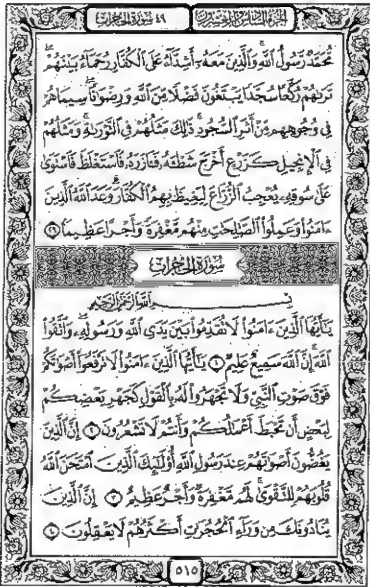 الجزء السادس والعشرون ٤٩ سورة الحجرات
مُّحَمَّدٌ رَّسُولُ ٱللَّهِ ۚ وَٱلَّذِينَ مَعَهُۥٓ أَشِدَّآءُ عَلَى ٱلْكُفَّارِ رُحَمَآءُ بَيْنَهُمْ ۖ
تَرَىٰهُمْ رُكَّعًا سُجَّدًا يَبْتَغُونَ فَضْلًا مِّنَ ٱللَّهِ وَرِضْوَٰنًا ۖ سِيمَاهُمْ
فِى وُجُوهِهِم مِّنْ أَثَرِ ٱلسُّجُودِ ۚ ذَٰلِكَ مَثَلُهُمْ فِى ٱلتَّوْرَىٰةِ ۚ وَمَثَلُهُمْ
فِى ٱلْإِنجِيلِ كَزَرْعٍ أَخْرَجَ شَطْـَٔهُۥ فَـَٔازَرَهُۥ فَٱسْتَغْلَظَ فَٱسْتَوَىٰ
عَلَىٰ سُوقِهِۦ يُعْجِبُ ٱلزُّرَّاعَ لِيَغِيظَ بِهِمُ ٱلْكُفَّارَ ۗ وَعَدَ ٱللَّهُ ٱلَّذِينَ
ءَامَنُوا۟ وَعَمِلُوا۟ ٱلصَّٰلِحَٰتِ مِنْهُم مَّغْفِرَةً وَأَجْرًا عَظِيمًۢا ٢٩
سُورَةُ الحُجُرَاتِ
بِسْمِ ٱللَّهِ ٱلرَّحْمَٰنِ ٱلرَّحِيمِ
يَٰٓأَيُّهَا ٱلَّذِينَ ءَامَنُوا۟ لَا تُقَدِّمُوا۟ بَيْنَ يَدَىِ ٱللَّهِ وَرَسُولِهِۦ ۖ وَٱتَّقُوا۟
ٱللَّهَ ۚ إِنَّ ٱللَّهَ سَمِيعٌ عَلِيمٌ ١ يَٰٓأَيُّهَا ٱلَّذِينَ ءَامَنُوا۟ لَا تَرْفَعُوٓا۟ أَصْوَٰتَكُمْ
فَوْقَ صَوْتِ ٱلنَّبِىِّ وَلَا تَجْهَرُوا۟ لَهُۥ بِٱلْقَوْلِ كَجَهْرِ بَعْضِكُمْ
لِبَعْضٍ أَن تَحْبَطَ أَعْمَٰلُكُمْ وَأَنتُمْ لَا تَشْعُرُونَ ٢ إِنَّ ٱلَّذِينَ
يَغُضُّونَ أَصْوَٰتَهُمْ عِندَ رَسُولِ ٱللَّهِ أُو۟لَٰٓئِكَ ٱلَّذِينَ ٱمْتَحَنَ ٱللَّهُ
قُلُوبَهُمْ لِلتَّقْوَىٰ ۚ لَهُم مَّغْفِرَةٌ وَأَجْرٌ عَظِيمٌ ٣ إِنَّ ٱلَّذِينَ
يُنَادُونَكَ مِن وَرَآءِ ٱلْحُجُرَٰتِ أَكْثَرُهُمْ لَا يَعْقِلُونَ ٤
٥١٥